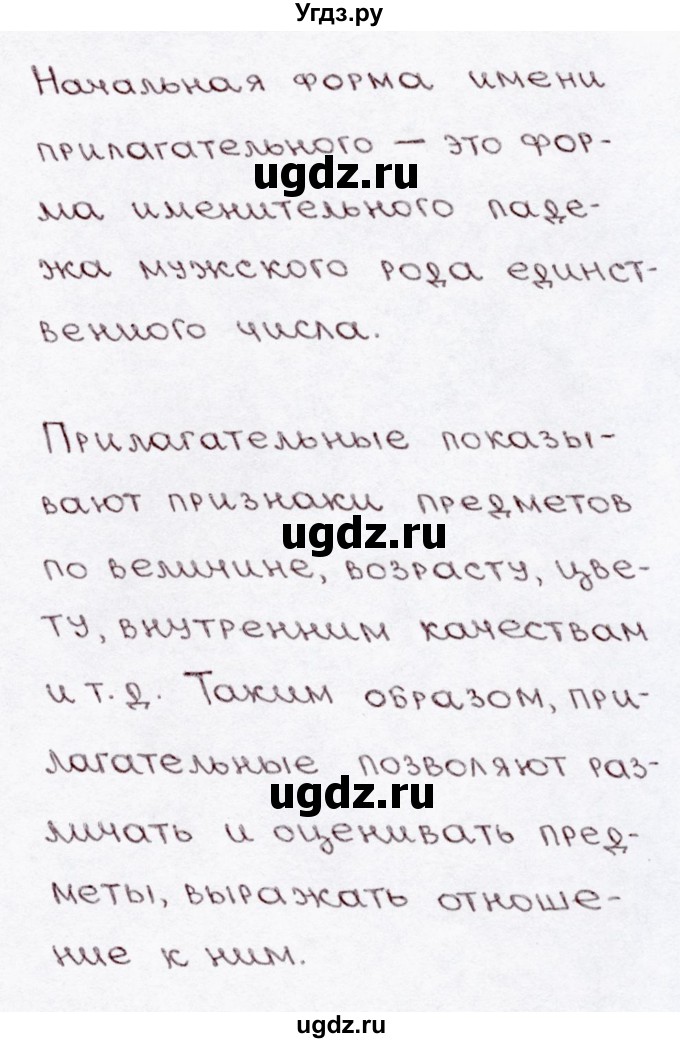 Угдз.ру
Начальная форма имени
прилагательного — это фор-
ugdz.ru
ма именительного паде-
жа мужского рода единст-
венного числа.
Прилагательные показы-
вают признаки предметов
ugdz.ru
по величине, возрасту, цве-
ту, внутренним качествам
и т. д. Таким образом, при-
лагательные позволяют раз-
ugdz.ru
личать и оценивать пред-
меты, выражать отноше-
ние к ним.
ugdz.ru